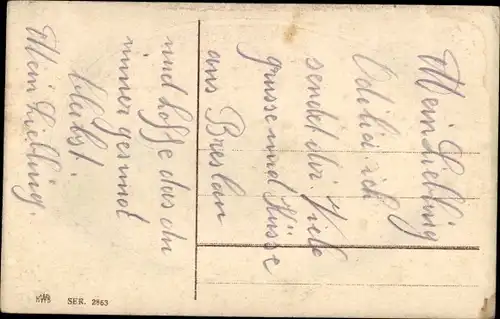 Mein Liebling
ich
sendet dir. Viele
grusse und Küsse
aus Breslau
und hoffe das du
immer gesund
bleibst!
Mein Liebling.
SER. 2863